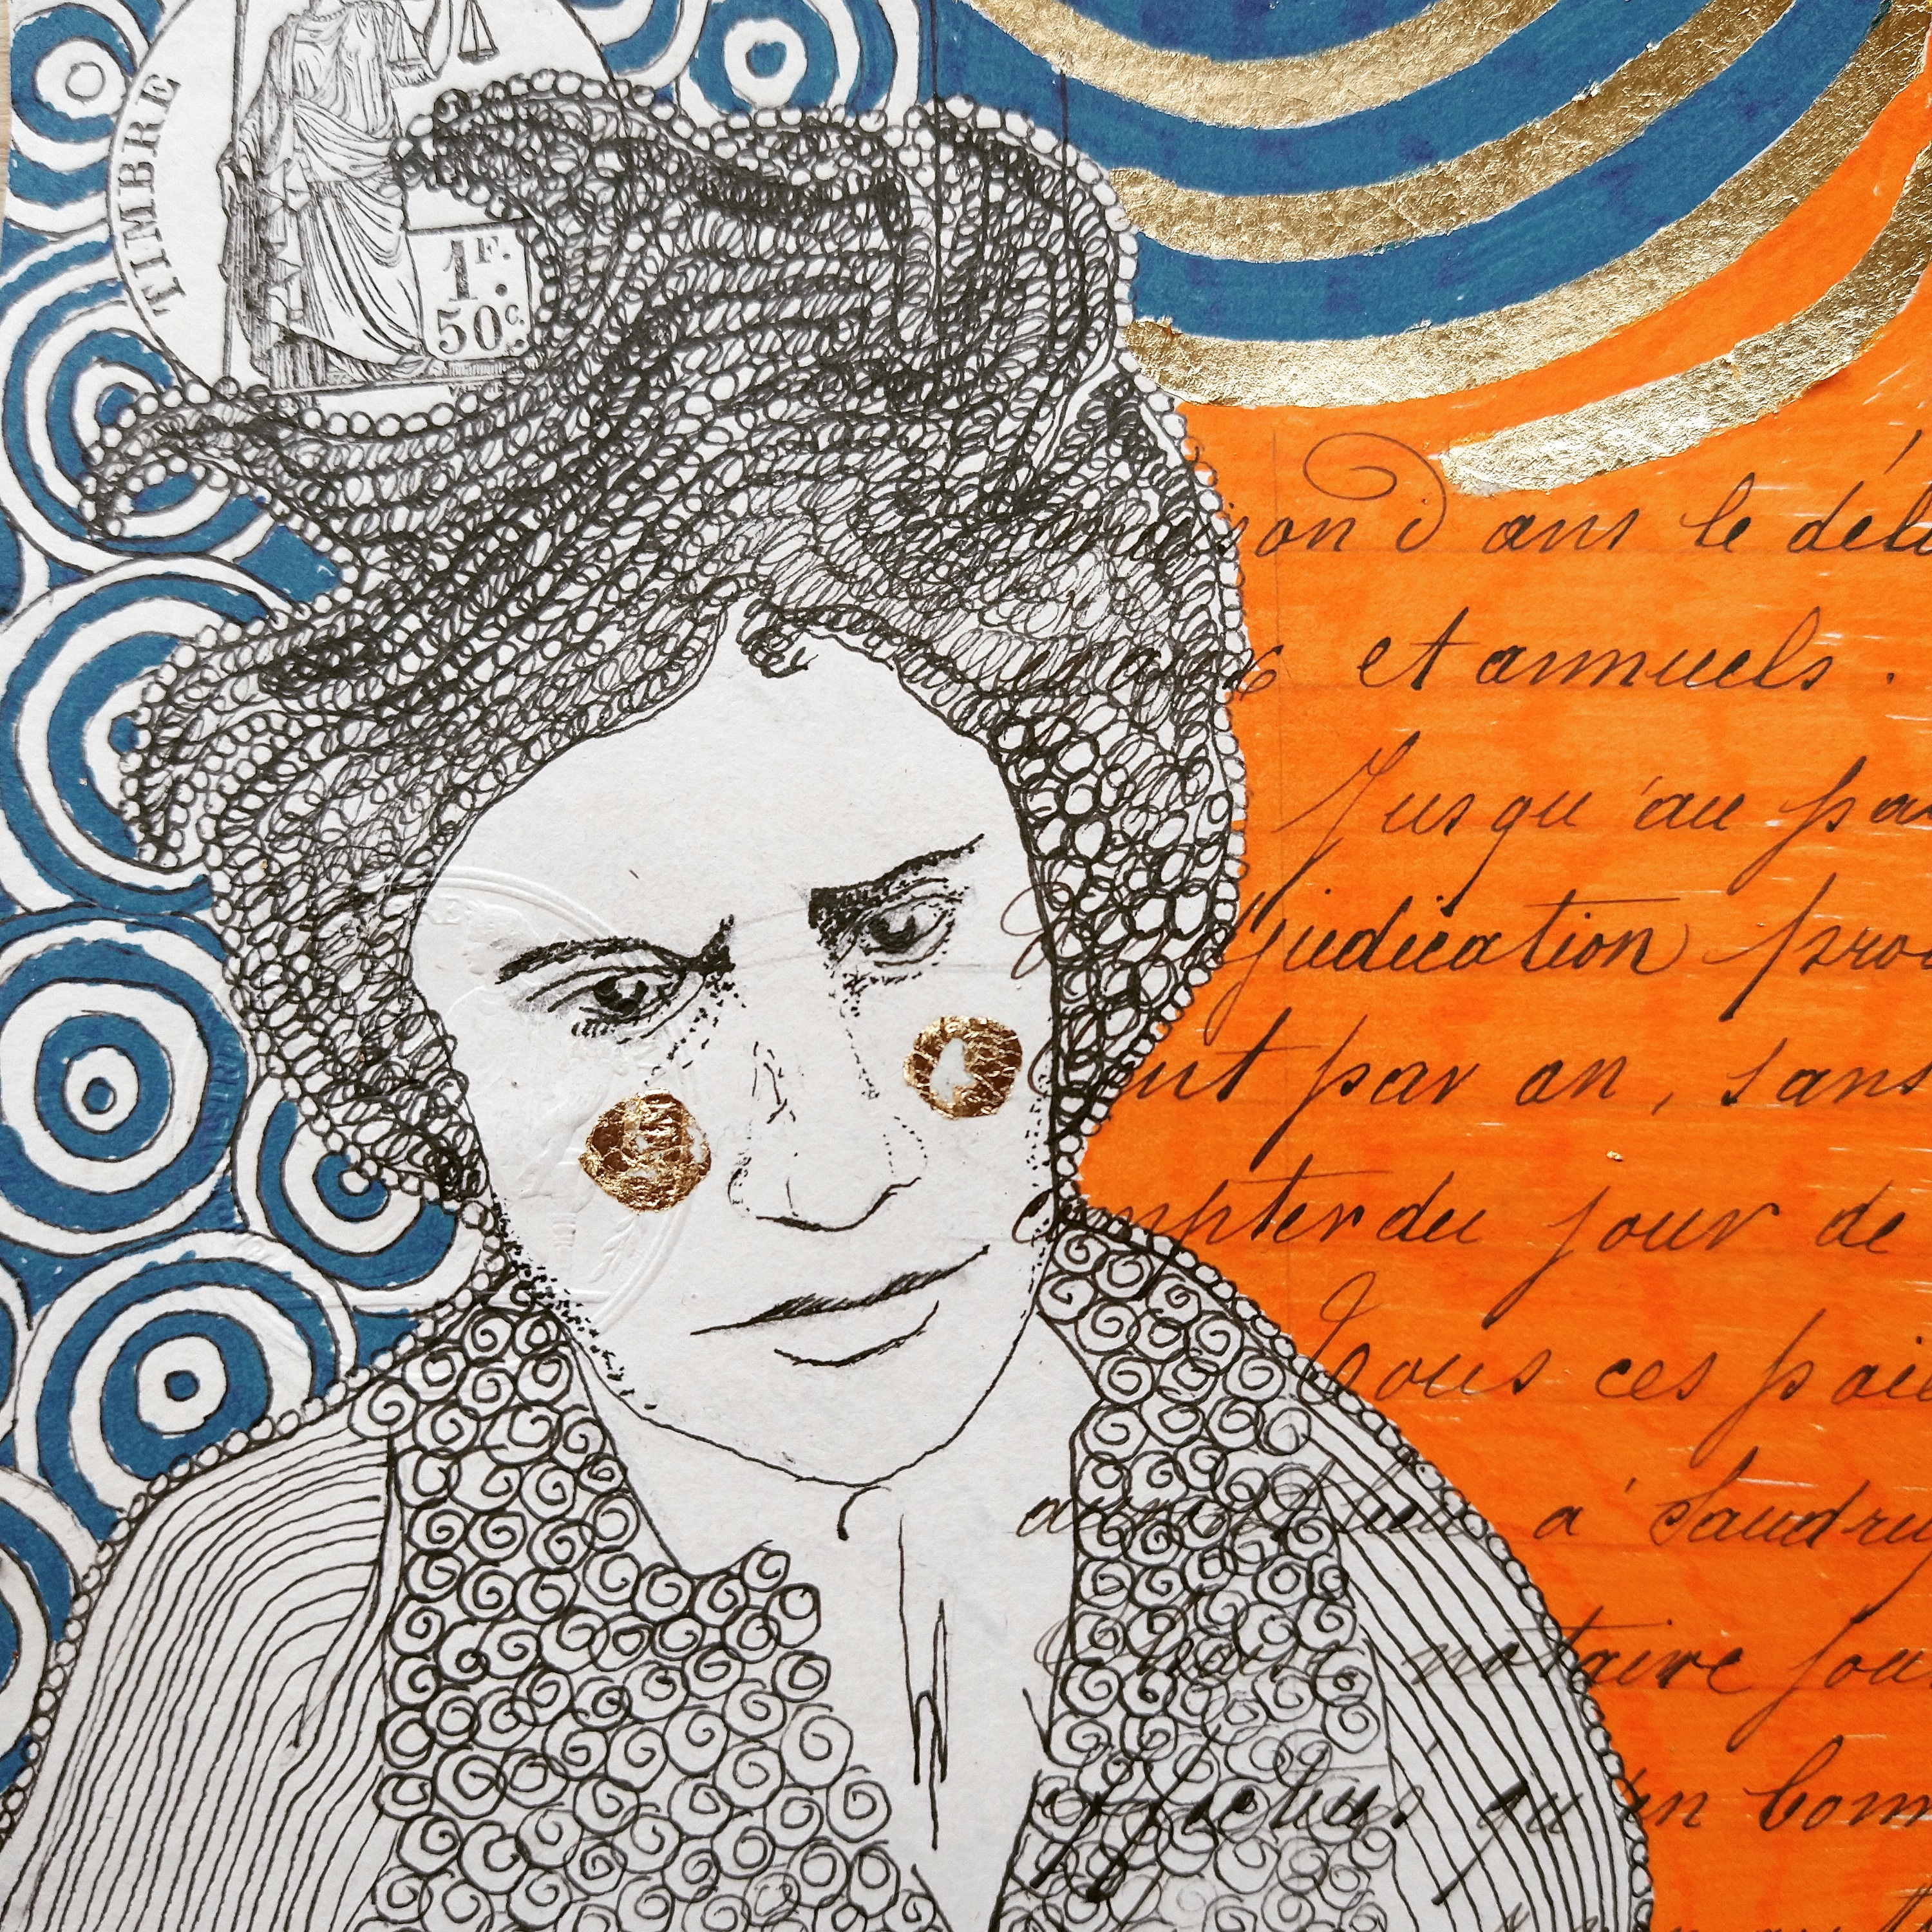 TIMBRE
1F.
50c.
dans le déla
et annuels.
Jusqu'au pa
adjudication pro
par an, sans
compter du jour de
Tous ces pai
à Saudru
notaire sou
qu'en bonn